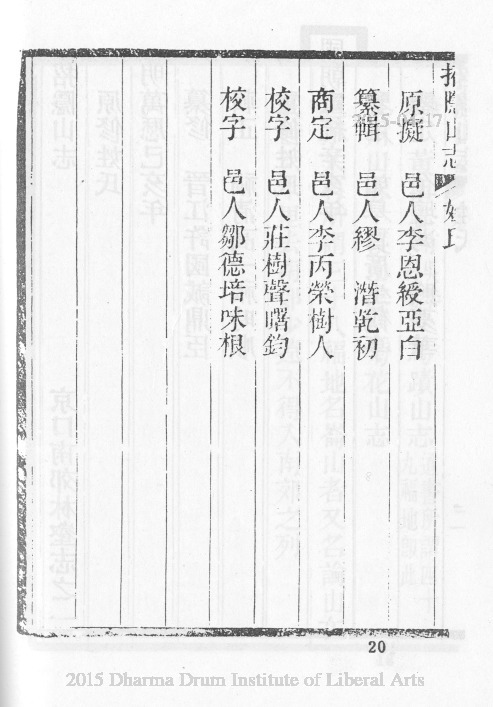 招隱山志 姓氏
原擬 邑人李恩綬亞白
纂輯 邑人繆 潛乾初
商定 邑人李丙榮樹人
校字 邑人莊樹聲曙鈞
校字 邑人鄒德培味根
20
2015 Dharma Drum Institute of Liberal Arts